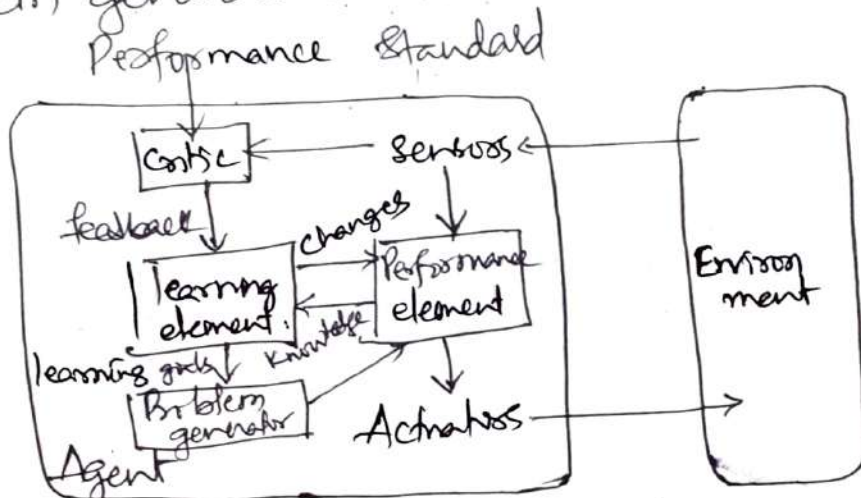 Performance Standard
Critic
Sensors
feedback
changes
learning
element.
Performance
element
Knowledge
Environ
ment
learning goals
Problem
generator
Actuators
Agent